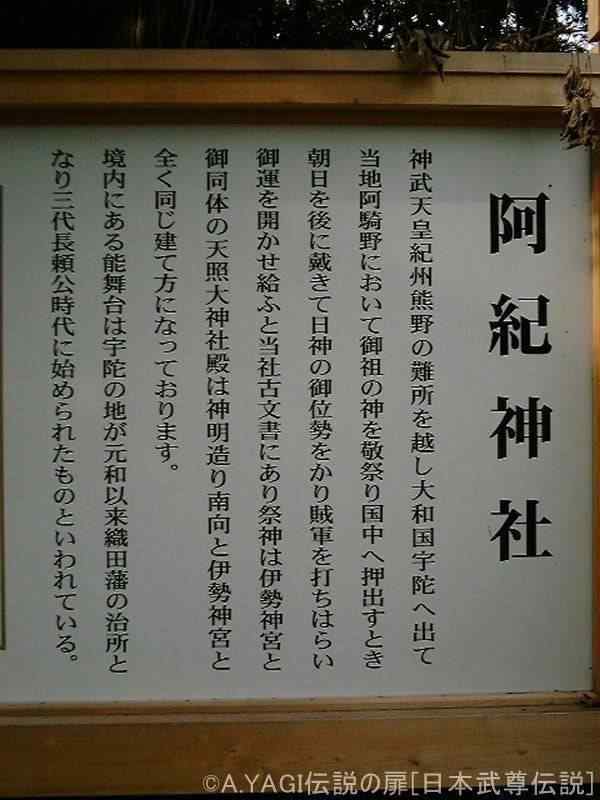 阿紀神社
神武天皇紀州熊野の難所を越し大和国宇陀へ出て
当地阿騎野において御祖の神を敬祭り国中へ押出すとき
朝日を後に戴きて日神の御位勢をかり賊軍を打ちはらい
御運を開かせ給ふと当社古文書にあり祭神は伊勢神宮と
御同体の天照大神社殿は神明造り南向と伊勢神宮と
全く同じ建て方になっております。
境内にある能舞台は宇陀の地が元和以来織田藩の治所と
なり三代長頼公時代に始められたものといわれている。
©A.YAGI伝説の扉[日本武尊伝説]